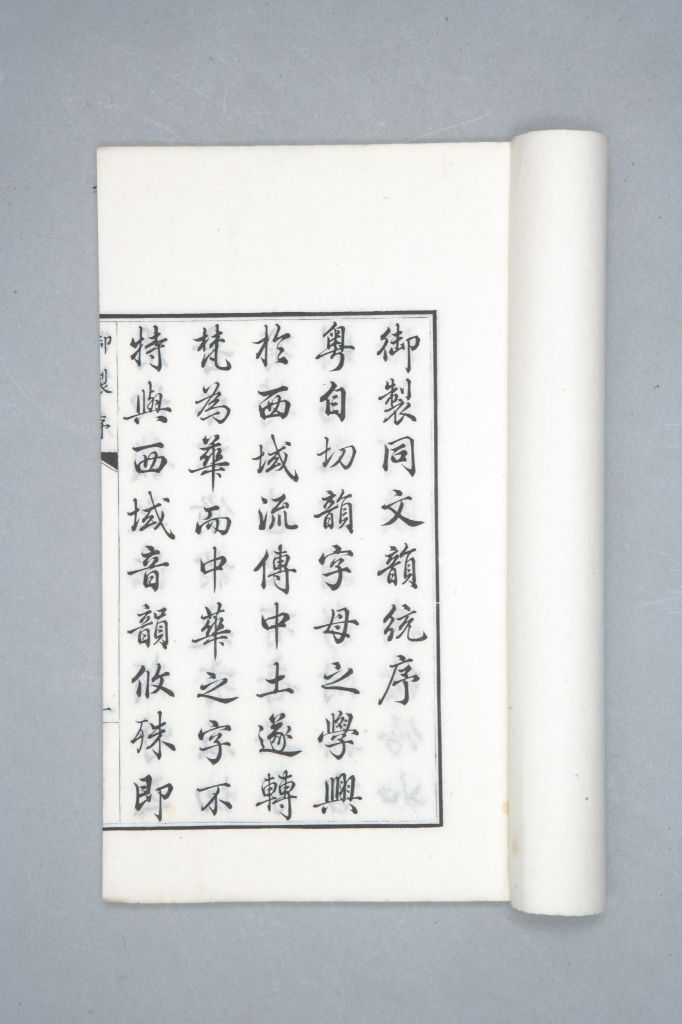 御製同文韻統序
粤自切韻字母之學興
於西域流傳中土遂轉
梵為華而中華之字不
特與西域音韻攸殊即
御製序
一